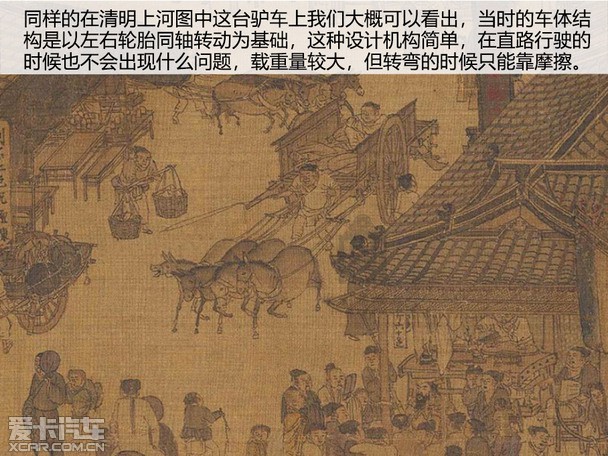 同样的在清明上河图中这台驴车上我们大概可以看出，当时的车体结
构是以左右轮胎同轴转动为基础，这种设计机构简单，在直路行驶的
时候也不会出现什么问题，载重量较大，但转弯的时候只能靠摩擦。
爱卡汽车
XCAR.COM.CN